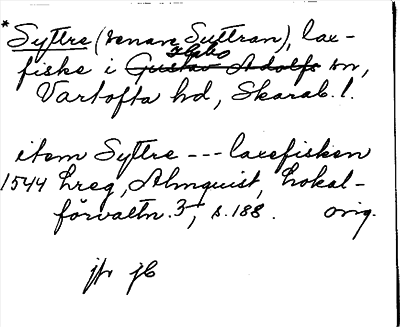 * Syttre (senare Suttran), lax-
fiske i Habo
Gustav Adolfs sn,
Vartofta hd, Skarab. l.
item Syttre --- laxefisken
1544 hreg, Almquist, Lokal-
förvaltn. 3, s. 188. orig.
jfr jb